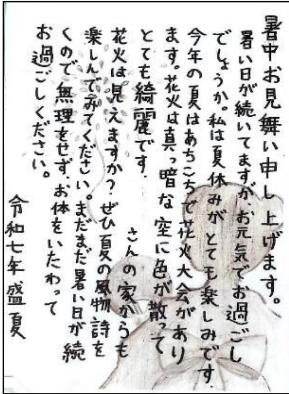 暑中お見舞い申し上げます。
暑い日が続いてますが、お元気でお過ごし
でしょうか。私は夏休みがとても楽しみです。
今年の夏はあちこちで花火大会があり
ます。花火は真っ暗な空に色が散って
とても綺麗です。
さんの家からも
花火は見えますか？ぜひ夏の風物詩を
楽しんでみてください。まだまだ暑い日が続
くので無理をせず、お体をいたわって
お過ごしください。
令和七年盛夏